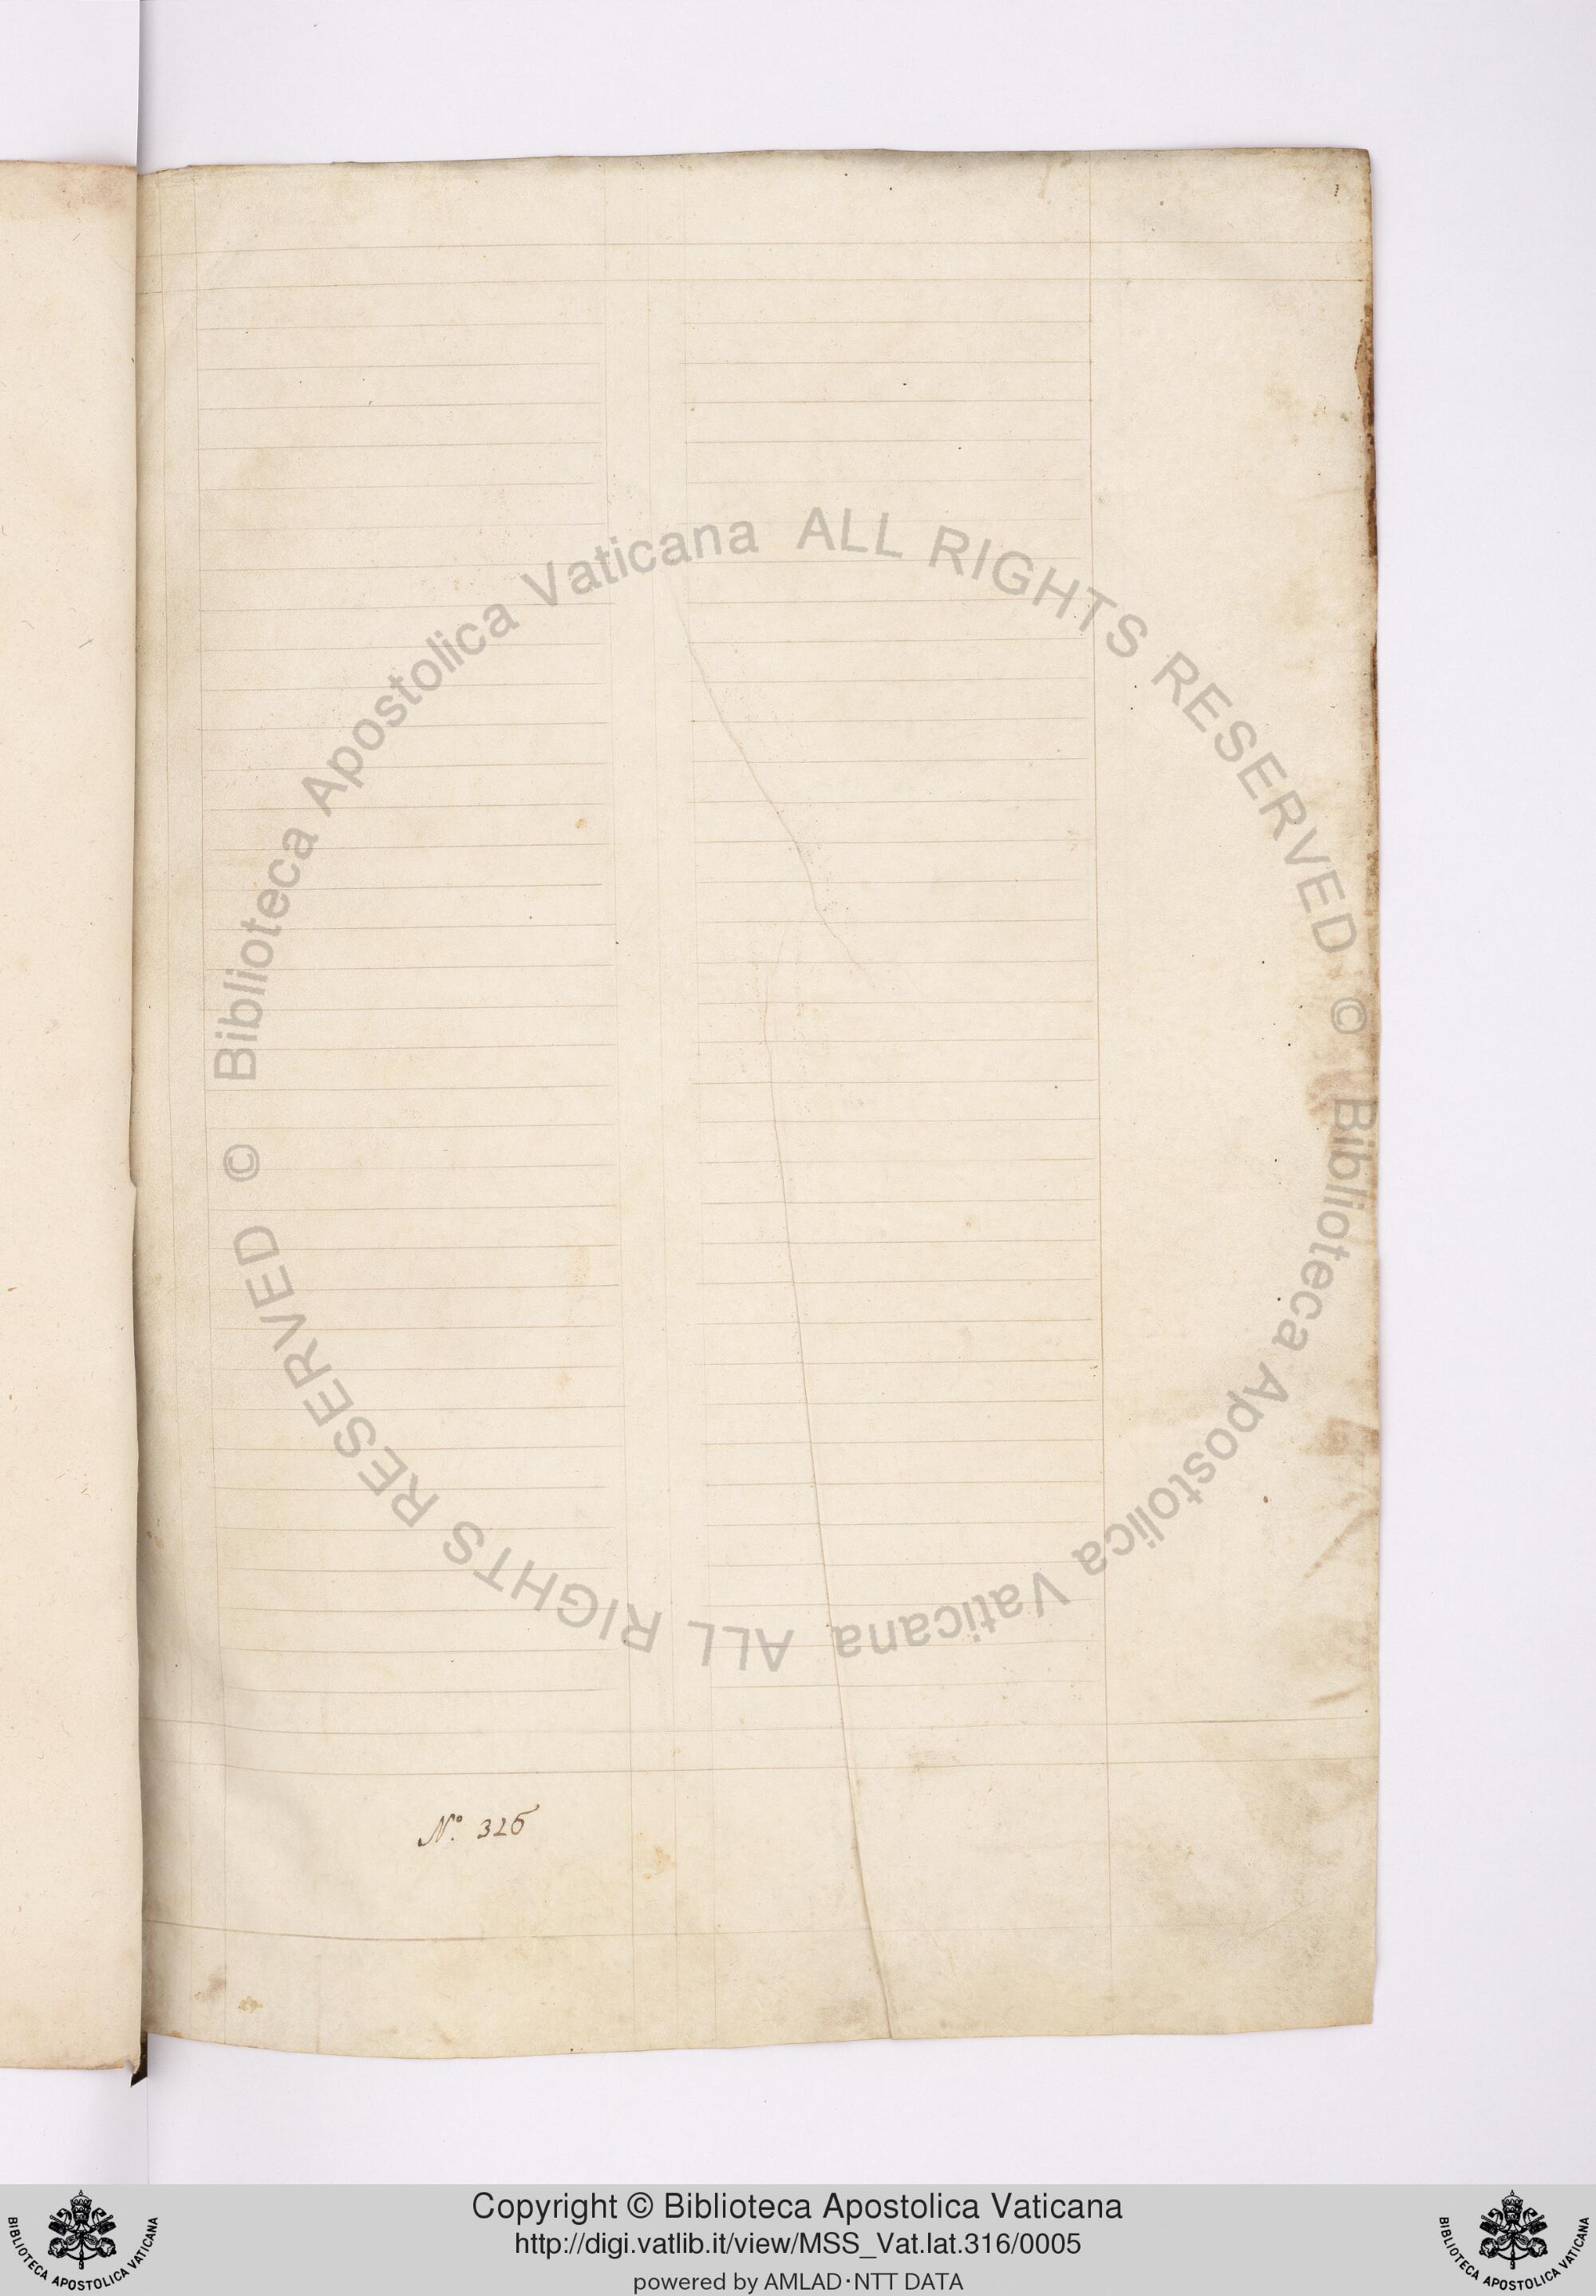 N.º 326
© Biblioteca Apostolica Vaticana ALL RIGHTS RESERVED © Biblioteca Apostolica Vaticana ALL RIGHTS RESERVED
Copyright © Biblioteca Apostolica Vaticana
http://digi.vatlib.it/view/MSS_Vat.lat.316/0005
powered by AMLAD·NTT DATA
BIBLIOTECA APOSTOLICA VATICANA
BIBLIOTECA APOSTOLICA VATICANA